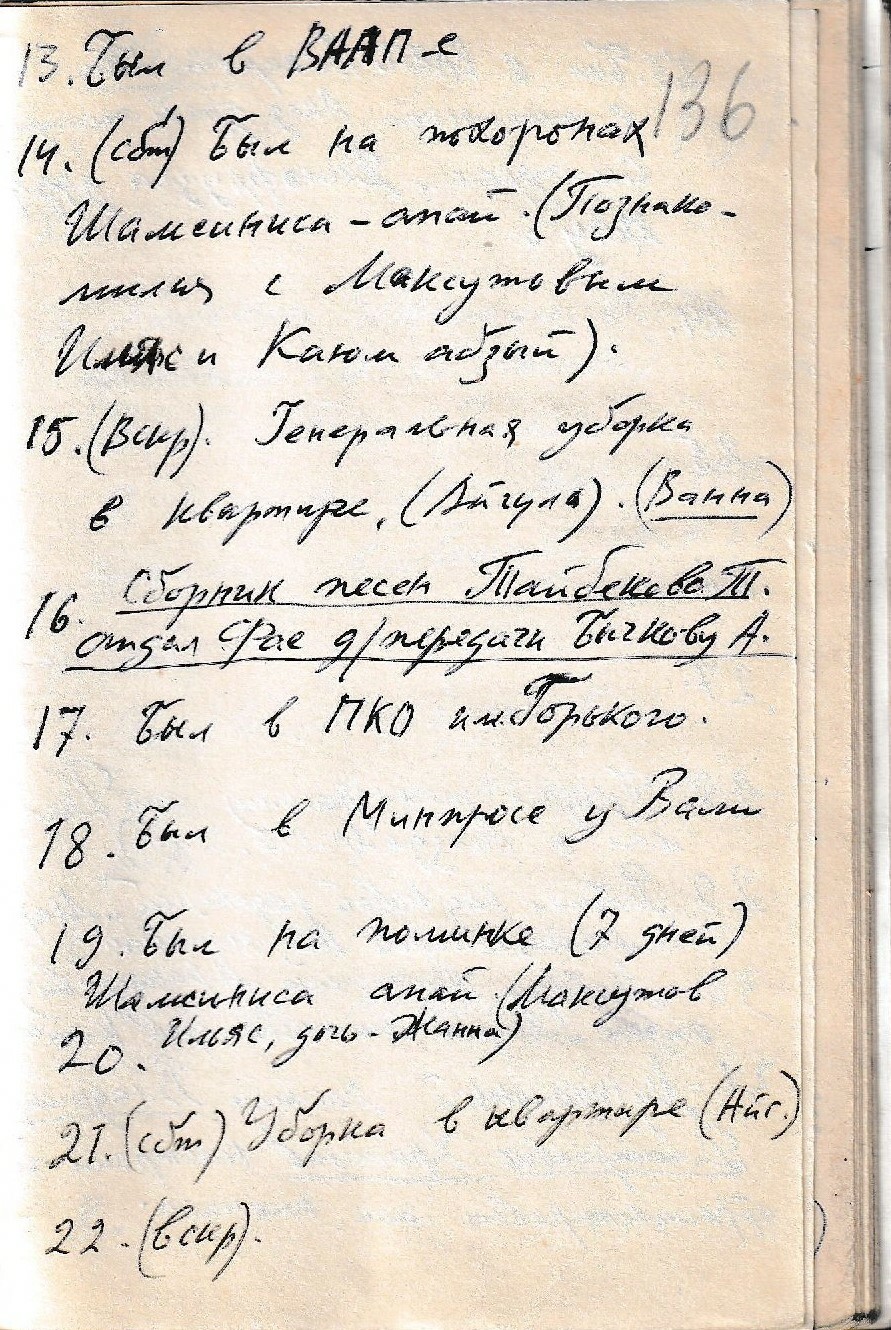 136
13. Был в ВААП-е
14. (сбт) Был на похоронах
Шамсиниса-апай. (Познако-
мился с Максутовым
Ильяс и Каюм абзый).
15. (Вскр). Генеральная уборка
в квартире. (Айгула). (Ванна)
16. Сборник песен Тайбекова Т.
отдал Фае д/передачи Бычкову А.
17. Был в ПКО им. Горького.
18. Был в Минпросе у Вали
19. Был на поминке (7 дней)
Шамсиниса апай. (Максутов
Ильяс, дочь - Жанна)
20.
21. (сбт) Уборка в квартире (Айг.)
22. (вскр).